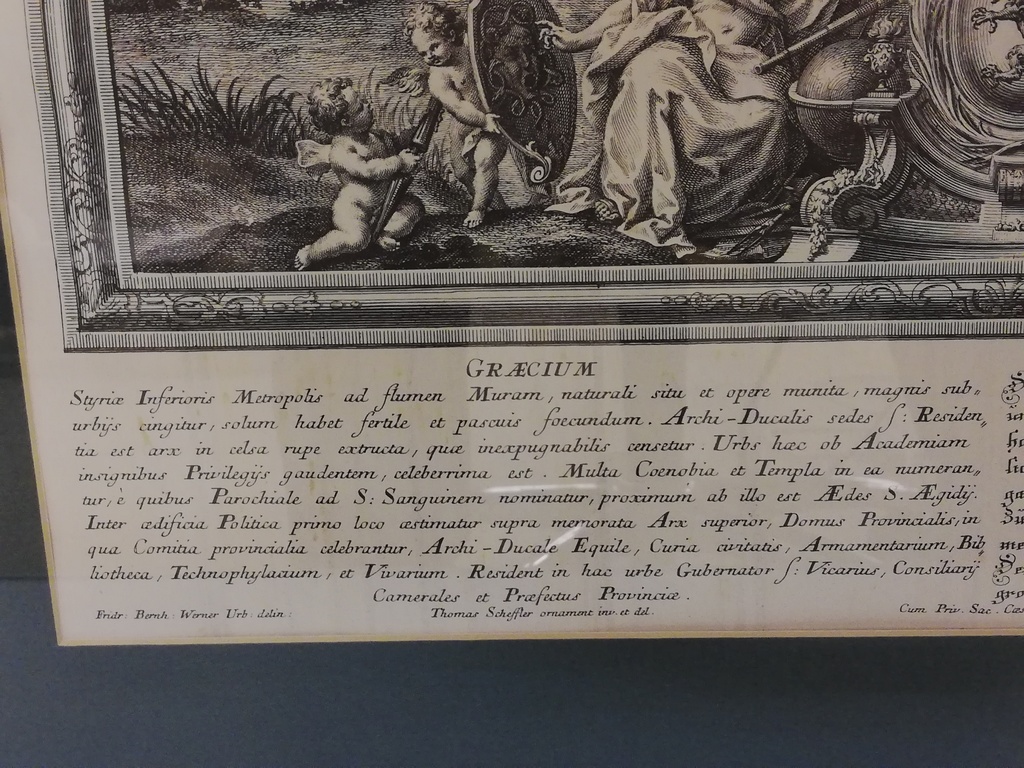 GRÆCIUM
Styriæ Inferioris Metropolis ad flumen Muram, naturali situ et opere munita, magnis sub„
urbijs cingitur, solum habet fertile et pascuis foecundum. Archi-Ducalis sedes ſ: Residen„
tia est arx in celsa rupe extructa, quæ inexpugnabilis censetur. Urbs hæc ob Academiam
insignibus Privilegijs gaudentem, celeberrima est. Multa Coenobia et Templa in ea numeran„
tur, è quibus Parochiale ad S: Sanguinem nominatur, proximum ab illo est Ædes S. Ægidij.
Inter ædificia Politica primo loco æstimatur supra memorata Arx superior, Domus Provincialis, in
qua Comitia provincialia celebrantur, Archi-Ducale Equile, Curia civitatis, Armamentarium, Bib„
liotheca, Technophylacium, et Vivarium. Resident in hac urbe Gubernator ſ: Vicarius, Consiliarij
Camerales et Præfectus Provinciæ.
Fridr: Bernh: Werner Urb: delin:
Thomas Scheffler ornament inv. et del.
Cum Priv. Sac. Cæs